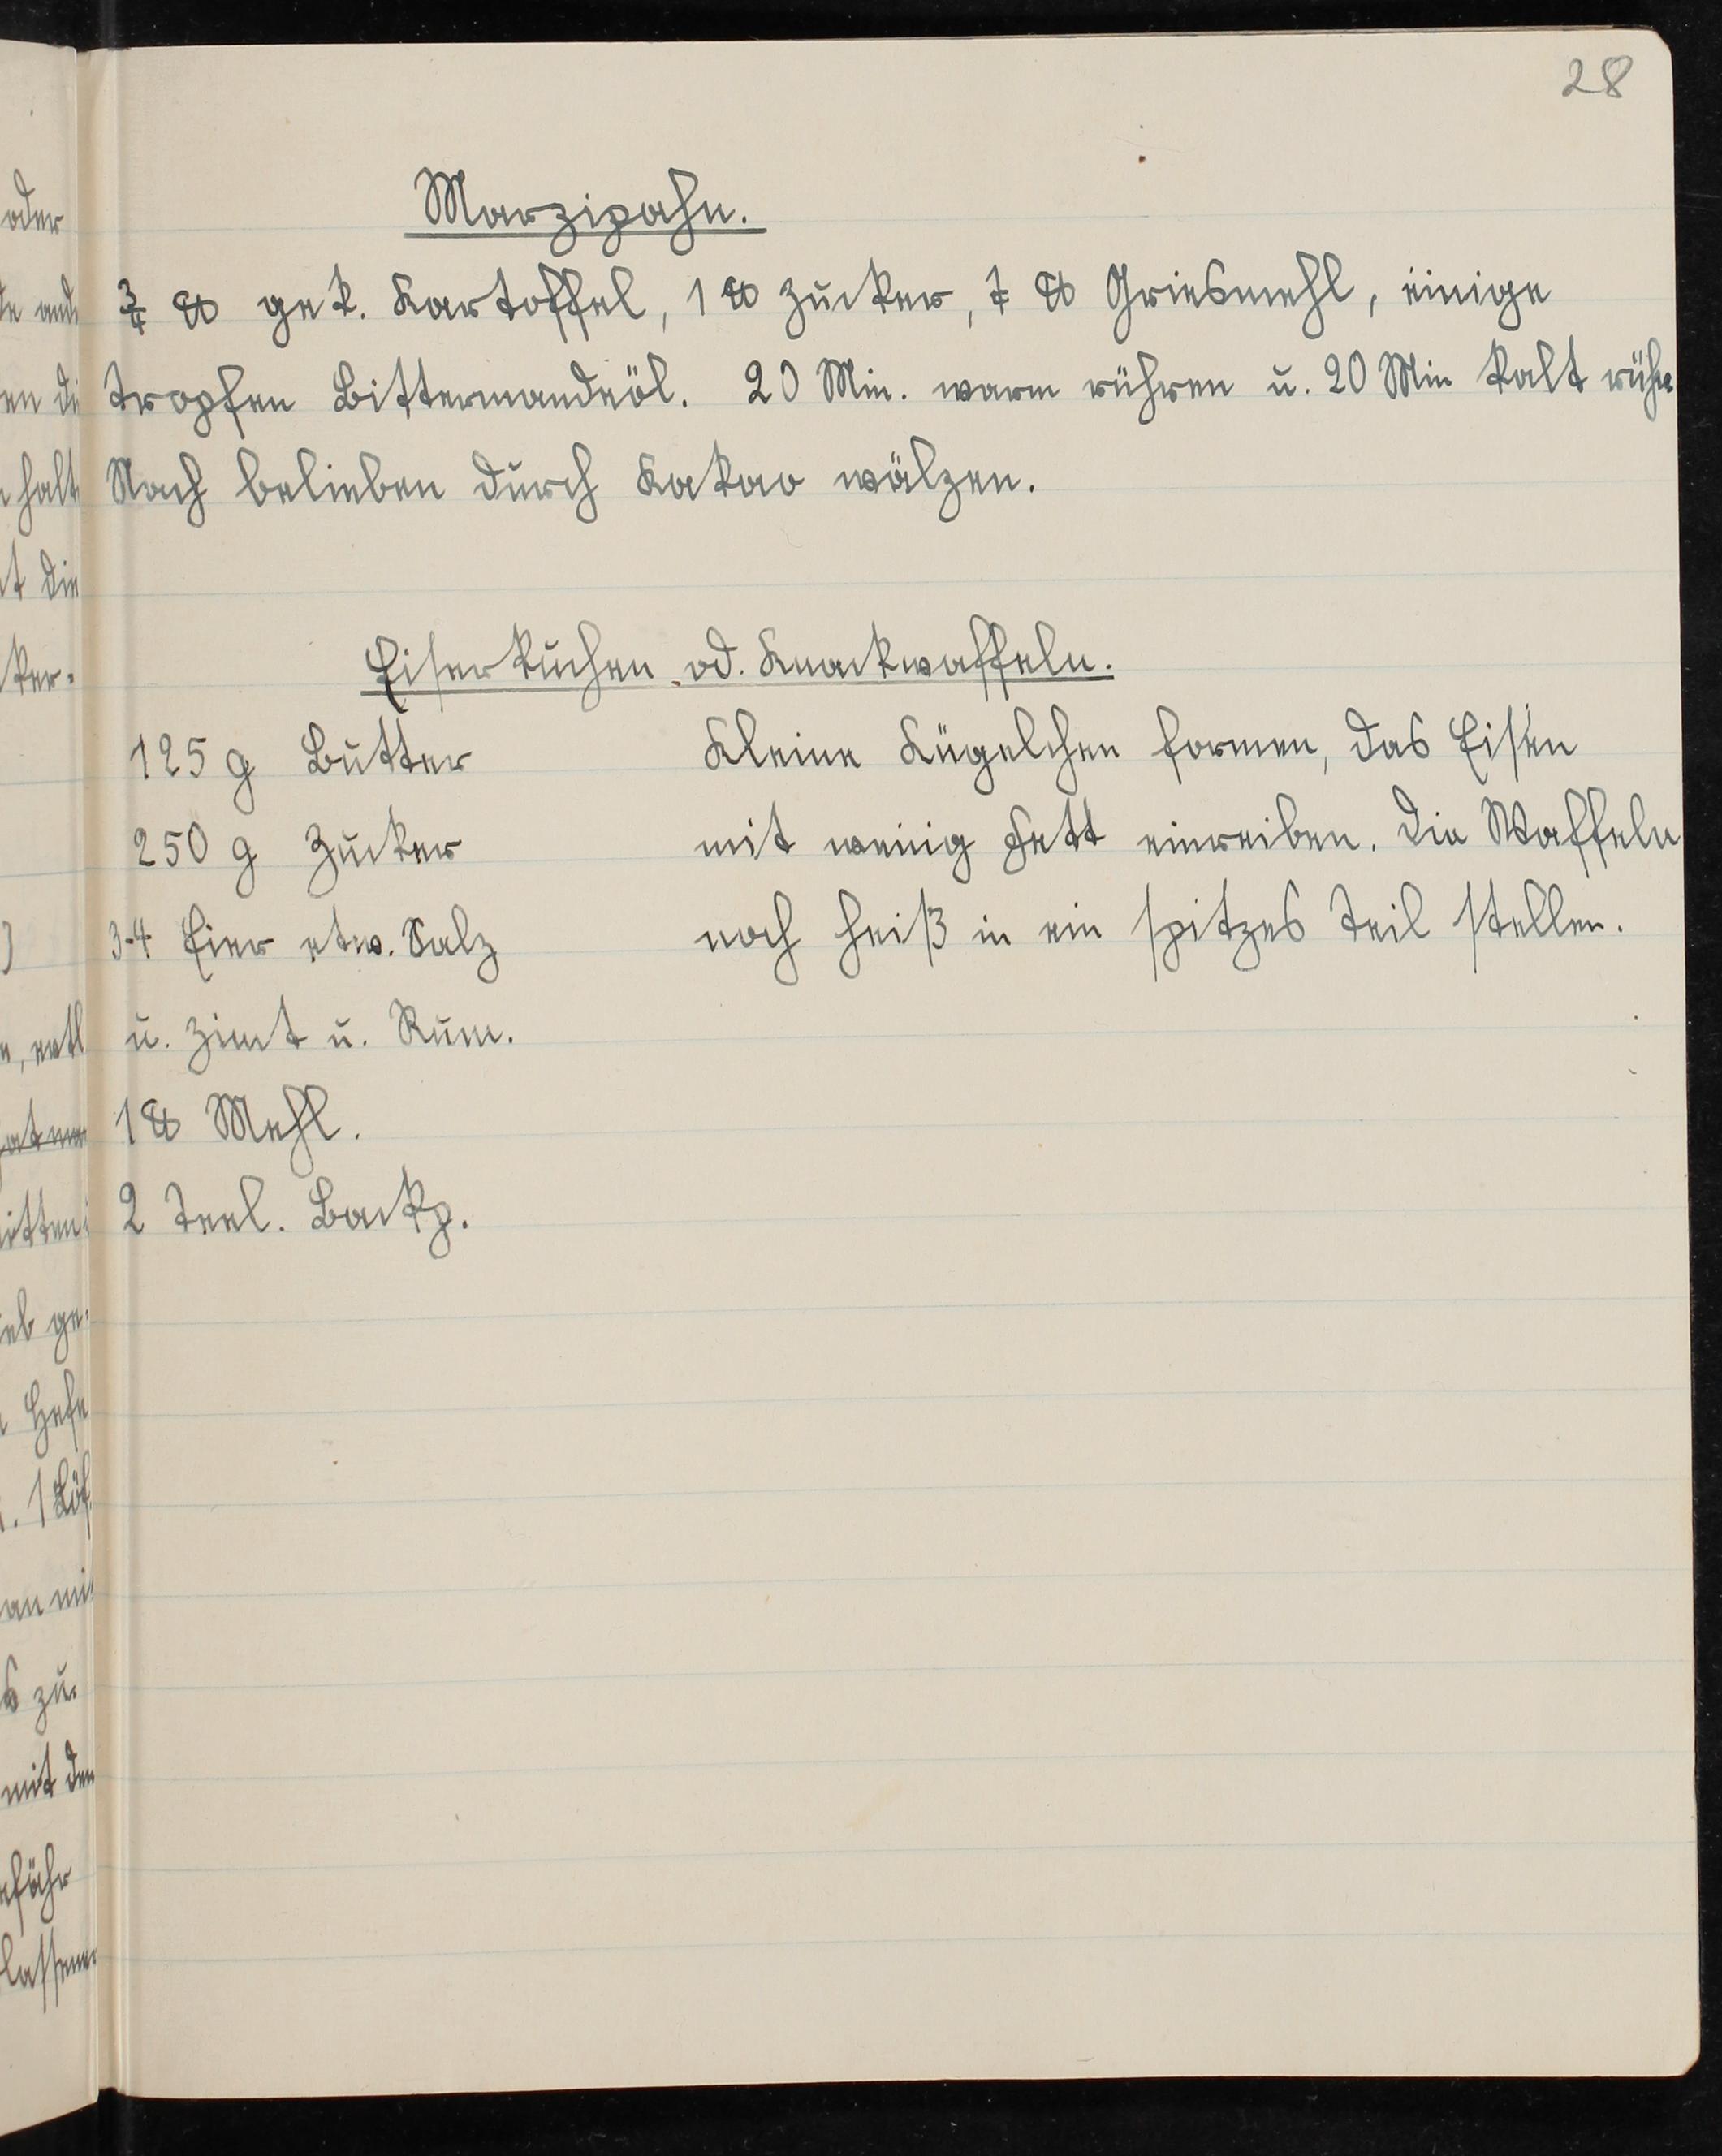 28
Marzipahn.
¾ ℔ gek. Kartoffel, 1 ℔ Zucker, ℔ Griesmehl, einige
Tropfen Bittermandeöl. 20 Min. warm rühren u. 20 Min kalt rühr
Nach belieben durch Kakao wälzen.
Eiserkuchen od. Knackwaffeln.
125 g Butter
250 g Zucker
3-4 Eier etw. Salz
u. Zimt u. Rum.
1 ℔ Mehl.
2 Teel. Backp.
Kleine Kügelchen formen, das Eisen
mit wenig Fett einreiben. Die Waffeln
noch heiß in ein spitzes Teil stellen.
oder
halt
t die
ker.
itten
eb ge-
Hefe
an mi
s zu
mit den